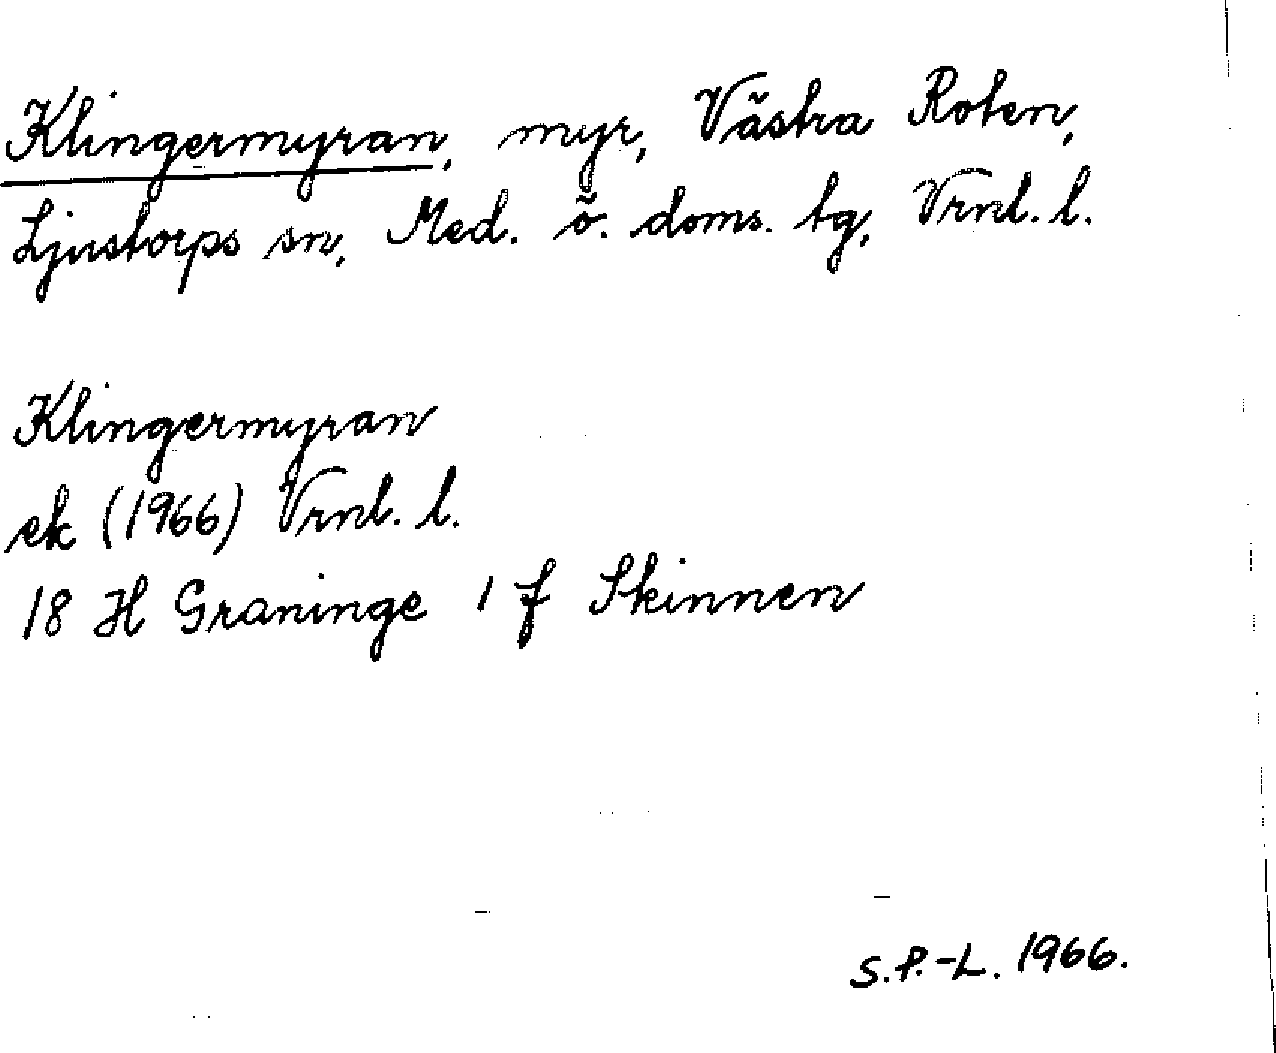 Klingermyran, myr, Västra Roten,
Ljustorps sn, Med. ö. doms. tg, Vrnl. l.
Klingermyran
ek (1966) Vrnl. l.
18 H Graninge 1 f Skinnen
S.P.-L. 1966.